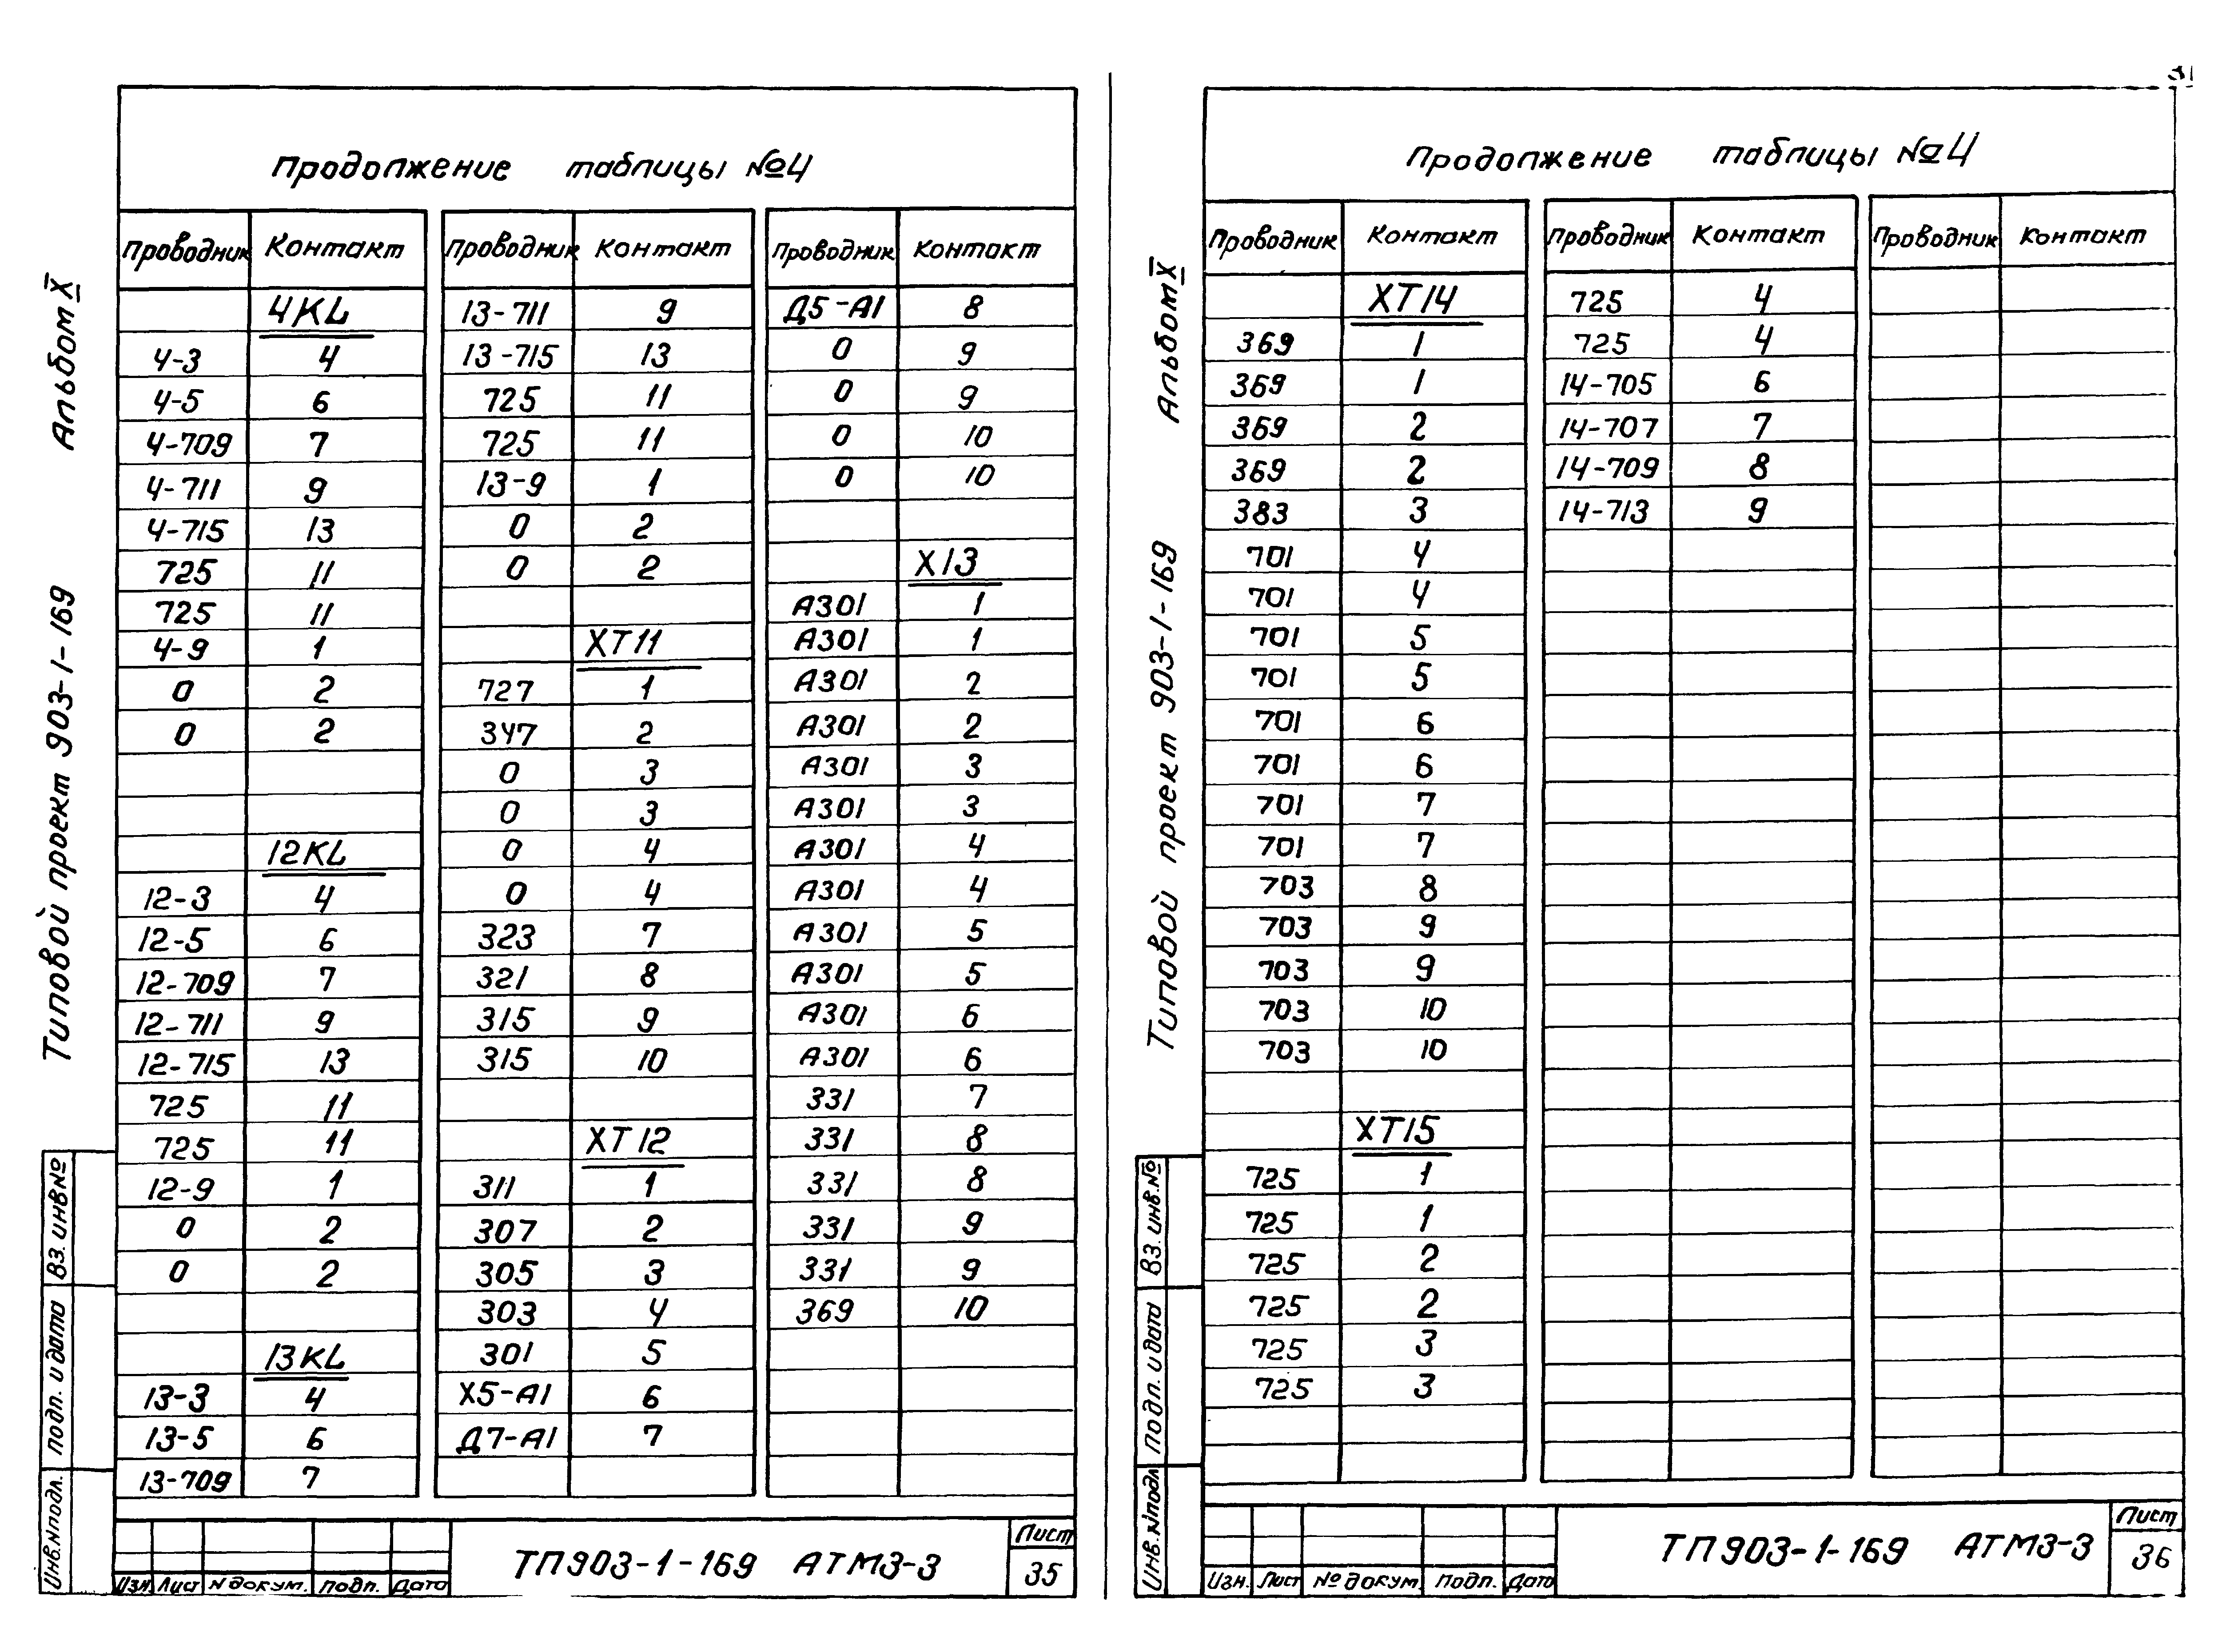 Продолжение таблицы №4
Проводник Контакт Проводник Контакт Проводник Контакт
4KL 13-711 9 Д5-А1 8
4-3 4 13-715 13 0 9
4-5 6 725 11 0 9
4-709 7 725 11 0 10
4-711 9 13-9 1 0 10
4-715 13 0 2
725 11 0 2 Х13
725 11 А301 1
4-9 1 ХТ11 А301 1
0 2 727 1 А301 2
0 2 347 2 А301 2
0 3 А301 3
0 3 А301 3
12KL 0 4 А301 4
12-3 4 0 4 А301 4
12-5 6 323 7 А301 5
12-709 7 321 8 А301 5
12-711 9 315 9 А301 6
12-715 13 315 10 А301 6
725 11 331 7
725 11 ХТ12 331 8
12-9 1 311 1 331 8
0 2 307 2 331 9
0 2 305 3 331 9
303 4 369 10
13KL 301 5
13-3 4 Х5-А1 6
13-5 6 Д7-А1 7
13-709 7
Альбом X
Типовой проект 903-1-169
Вз. инв№
Подп. и дата
Инв.№подл.
Изм. Лист № докум. Подп. Дата
ТП903-1-169 АТМ3-3
Лист
35
Продолжение таблицы №4
Проводник Контакт Проводник Контакт Проводник Контакт
ХТ14 725 4
369 1 725 4
369 1 14-705 6
369 2 14-707 7
369 2 14-709 8
383 3 14-713 9
701 4
701 4
701 5
701 5
701 6
701 6
701 7
701 7
703 8
703 9
703 9
703 10
703 10
ХТ15
725 1
725 1
725 2
725 2
725 3
725 3
Альбом X
Типовой проект 903-1-169
Вз. инв.№
Подп. и дата
Инв.№подл
Изм. Лист № докум. Подп. Дата
ТП903-1-169 АТМ3-3
Лист
36